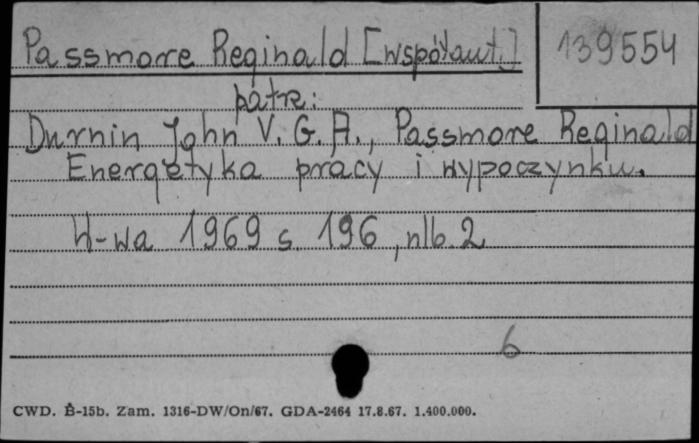 Passmore Reginald [współaut.]
139554
patrz:
Durnin John V. G. A., Passmore Reginald
Energetyka pracy i wypoczynku.
W-wa 1969 s. 196, nlb. 2
6
CWD. B-15b. Zam. 1316-DW/On/67. GDA-2464 17.8.67. 1.400.000.